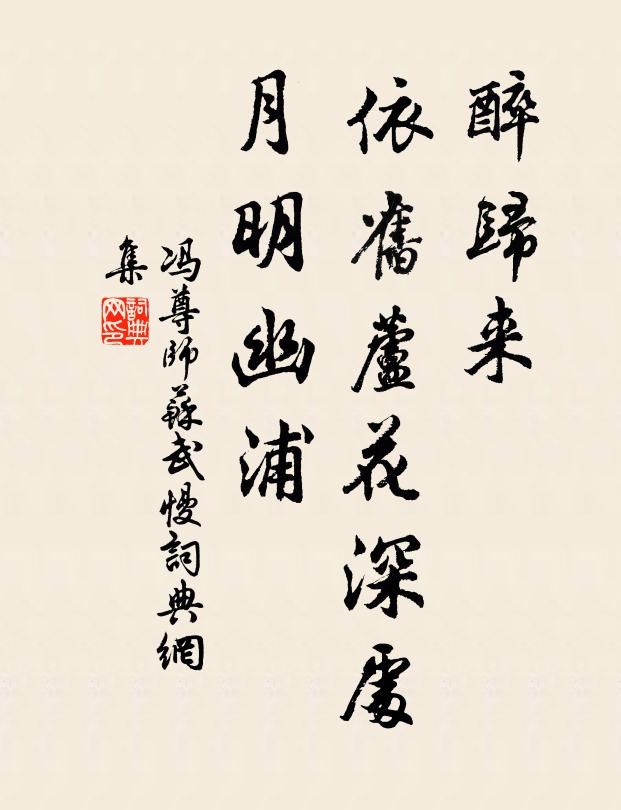 醉歸来
依舊蘆花深處
月明幽浦
冯尊師蘇武慢詞典網
集
詞典
网印